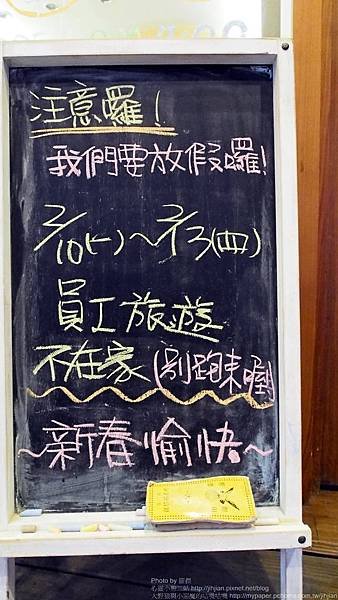 注意囉!
我們要放假囉!
2/10(一)～2/13(四)
員工旅遊
不在家(別跑來喔)
～新春愉快～
Photo by
http://jihjian.pixnet.net/blog
http://mypaper.pchome.com.tw/jihjian